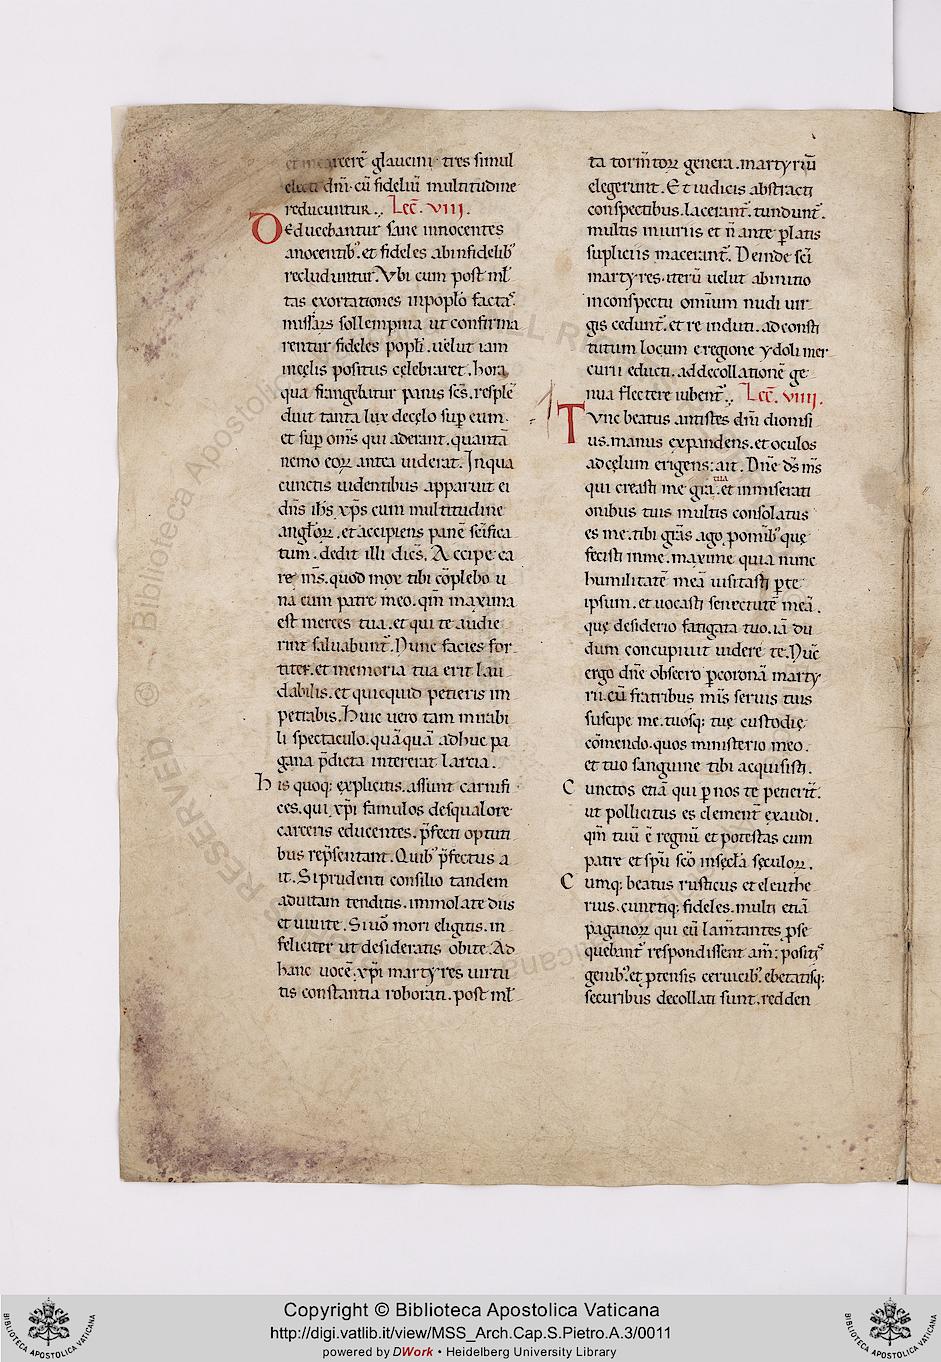 et incarcere᷑ glaucini tres simul
electi dn̅i cu̅ fideliu̅ multitudine
reducuntur. Lec̅. VIII.
Deducebantur sane innocentes
anocentib; et fideles abinfidelib;
recluduntur. Vbi cum post ml̅
tas exortationes inpopl̅o facta᷑.
missaꝝ sollempnia ut confirma
rentur fideles popl̅i. uelut iam
incęlis positus celebraret. hora
qua frangebatur panis sc̅s. resple̅
duit tanta lux decęlo sup̲ eum.
et sup̲ om̅s qui aderant. quanta̅
nemo eoꝝ antea uiderat. Inqua
cunctis uidentibus apparuit ei
dn̅s ih̅s xp̅s cum multitudine
angl̅oꝝ. et accipiens pane̅ sc̅ifica
tum. dedit illi dice̅s. Accipe ca
re m̅s. quod mox tibi co̅plebo u
na cum patre meo. qm̅ maxima
est merces tua. et qui te audie
rint saluabunt᷑. Nunc facies for-
titer. et memoria tua erit lau
dabilis. et quicquid petieris im
petrabis. Huic uero tam mirabi
li spectaculo. qua̅qua̅ adhuc pa
gana p̅dicta intererat larcia.
His quoq; explicitis. assunt carnifi
ces. qui xp̅i famulos desqualore
carceris educentes. p̅fecti optuti
bus rep̅sentant. Quib; p̅fectus a
it. Si prudenti consilio tandem
aduitam tenditis. immolate diis
et uiuite. Si uo̅ mori eligitis. in
feliciter ut desideratis obite. Ad
hanc uoce̅. xp̅i martyres uirtu
tis constantia roborati. post ml̅
ta torm̅toꝝ genera. martyriu̅
elegerunt. Et iudicis abstracti
conspectibus. lacerant᷑. tundunt᷑.
multis iniuriis et n̅ ante p̲latis
supliciis macerant᷑. Deinde sc̅i
martyres. iteru̅ uelut abinitio
inconspectu omnium nudi uir
gis cedunt᷑. et re induti. ad consti
tutum locum eregione ydoli mer
curii educti. addecollatione̅ ge
nua flectere iubent᷑. Lec̅. VIIII.
Tunc beatus antistes dn̅i dionisi
us. manus expandens. et oculos
adcęlum erigens: ait. Dn̅e ds̅ m̅s
qui creasti me gr̅a tua. et inmiserati
onibus tuis multis consolatus
es me. tibi gr̅as ago. p̲ omib; quę
fecisti inme. maxime quia nunc
humilitate̅ mea̅ uisitasti p̲ te
ipsum. et uocasti senectute̅ mea̅.
quę desiderio fatigata tuo. ia̅ du
dum concupiuit uidere te. Nu̅c
ergo dn̅e obsecro p̲ corona̅ marty
rii. cu̅ fratribus m̅is seruis tuis
suscipe me. tuosq; tuę custodię
co̅mendo. quos ministerio meo.
et tuo sanguine tibi acquisisti.
Cunctos etia̅ qui p̲ nos te petieri̅t.
ut pollicitus es clement᷑ exaudi.
qm̅ tuu̅ e̅ regnu̅ et potestas cum
patre et sp̅u sc̅o insęcl̅a sęculoꝝ.
Cumq; beatus rusticus et eleuthe
rius. cunctiq; fideles. multi etia̅
paganoꝝ qui eu̅ lam̅tantes p̲se
quebant᷑ respondissent am̅: positis
genib; et p̲tensis ceruicib;. ebetatisq;
securibus decollati sunt. redden
Copyright © Biblioteca Apostolica Vaticana
http://digi.vatlib.it/view/MSS_Arch.Cap.S.Pietro.A.3/0011
powered by DWork • Heidelberg University Library
BIBLIOTECA APOSTOLICA VATICANA
BIBLIOTECA APOSTOLICA VATICANA